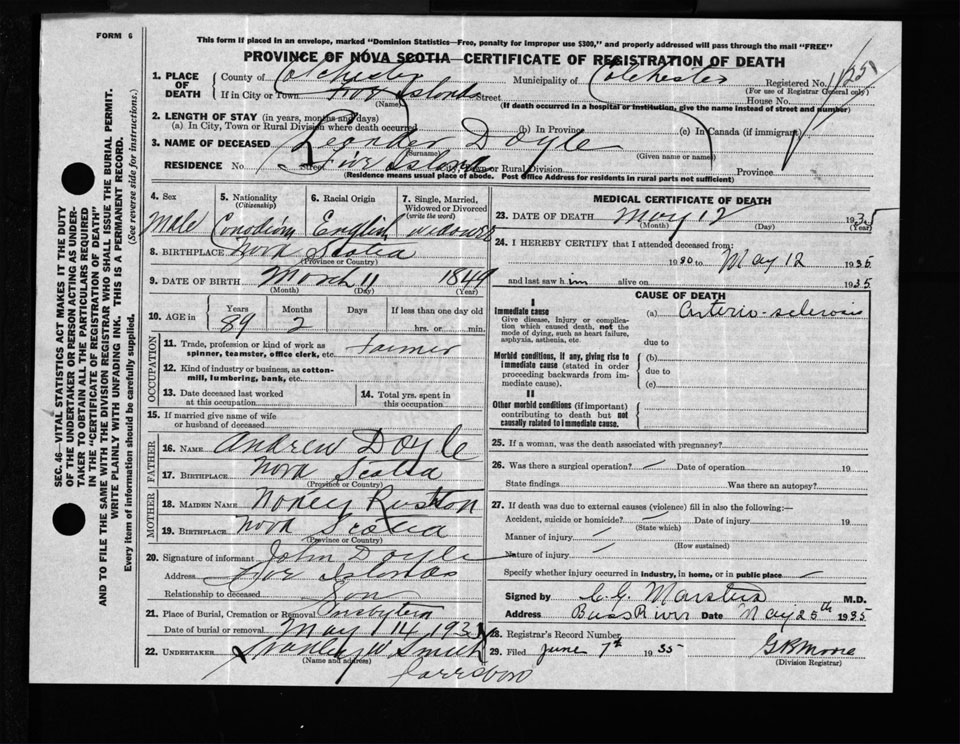 FORM 6
This form if placed in an envelope, marked "Dominion Statistics—Free, penalty for improper use $300," and properly addressed will pass through the mail "FREE"
PROVINCE OF NOVA SCOTIA—CERTIFICATE OF REGISTRATION OF DEATH
1. PLACE OF DEATH
County of Colchester Municipality of Colchester Registered No.
(For use of Registrar General only)
If in City or Town Five Islands Street House No.
(Name) (If death occurred in a hospital or institution, give the name instead of street and number)
2. LENGTH OF STAY (in years, months and days)
(a) In City, Town or Rural Division where death occurred (b) In Province (c) In Canada (if immigrant)
3. NAME OF DECEASED Leander Doyle
(Surname) (Given name or names)
RESIDENCE No. Street Five Islands City, Town or Rural Division Province
(Residence means usual place of abode. Post Office Address for residents in rural parts not sufficient)
4. Sex 5. Nationality (Citizenship) 6. Racial Origin 7. Single, Married, Widowed or Divorced (write the word)
male Canadian English widower
8. BIRTHPLACE Nova Scotia
(Province or Country)
9. DATE OF BIRTH March 11 1849
(Month) (Day) (Year)
10. AGE in Years Months Days If less than one day old
89 2 hrs. or min.
OCCUPATION
11. Trade, profession or kind of work as spinner, teamster, office clerk, etc. farmer
12. Kind of industry or business, as cotton-mill, lumbering, bank, etc.
13. Date deceased last worked at this occupation
14. Total yrs. spent in this occupation
15. If married give name of wife or husband of deceased
FATHER
16. NAME Andrew Doyle
17. BIRTHPLACE Nova Scotia
(Province or Country)
MOTHER
18. MAIDEN NAME
19. BIRTHPLACE Nova Scotia
(Province or Country)
20. Signature of informant John Doyle
Address Five Islands
Relationship to deceased Son
21. Place of Burial, Cremation or Removal
Date of burial or removal May 14 193
22. UNDERTAKER Stanley W Smith
(Name and address)
Parrsboro
MEDICAL CERTIFICATE OF DEATH
23. DATE OF DEATH May 12 1935
(Month) (Day) (Year)
24. I HEREBY CERTIFY that I attended deceased from:
1930 to May 12 1935
and last saw him alive on 1935
CAUSE OF DEATH
I
Immediate cause (a) Arterio-sclerosis
Give disease, injury or complication which caused death, not the mode of dying, such as heart failure, asphyxia, asthenia, etc.
due to
Morbid conditions, if any, giving rise to immediate cause (stated in order proceeding backwards from immediate cause).
(b)
due to
(c)
II
Other morbid conditions (if important) contributing to death but not causally related to immediate cause.
25. If a woman, was the death associated with pregnancy?
26. Was there a surgical operation? Date of operation 19
State findings Was there an autopsy?
27. If death was due to external causes (violence) fill in also the following:—
Accident, suicide or homicide? Date of injury 19
(State which)
Manner of injury
(How sustained)
Nature of injury
Specify whether injury occurred in industry, in home, or in public place
Signed by C. G. Marsters M.D.
Address Bass River Date May 25th 1935
28. Registrar's Record Number
29. Filed June 7th 1935 G R Moore
(Division Registrar)
SEC. 46—VITAL STATISTICS ACT MAKES IT THE DUTY
OF THE UNDERTAKER OR PERSON ACTING AS UNDER-
TAKER TO OBTAIN ALL THE PARTICULARS REQUIRED
IN THE "CERTIFICATE OF REGISTRATION OF DEATH"
AND TO FILE THE SAME WITH THE DIVISION REGISTRAR WHO SHALL ISSUE THE BURIAL PERMIT.
WRITE PLAINLY WITH UNFADING INK. THIS IS A PERMANENT RECORD.
Every item of information should be carefully supplied. (See reverse side for instructions.)